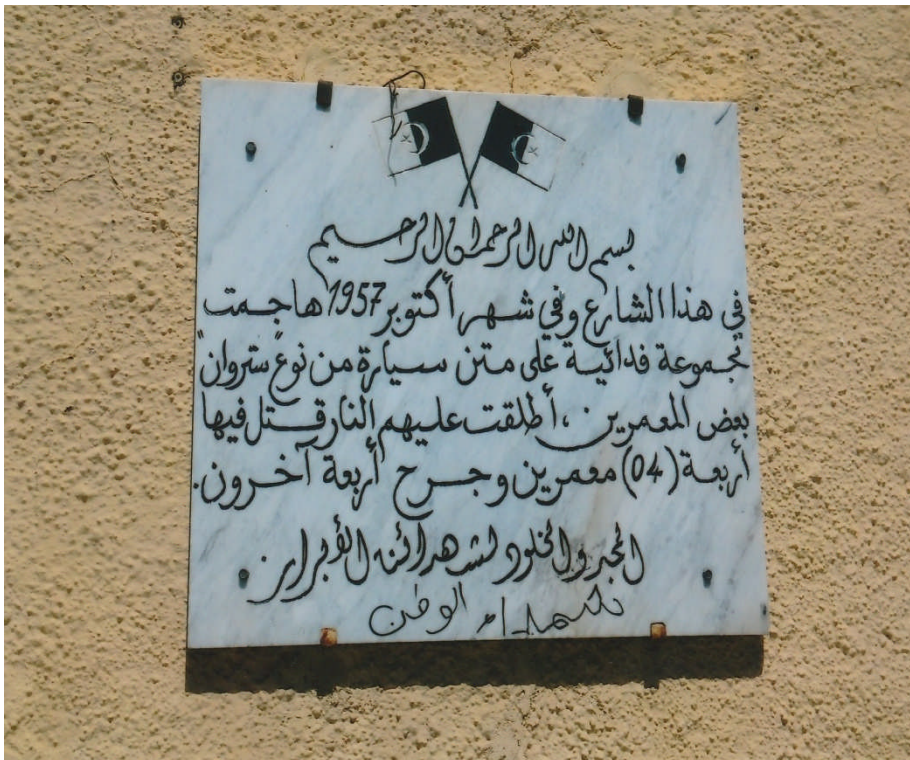 بسم الله الرحمان الرحيم
في هذا الشارع وفي شهر أكتوبر 1957 هاجمت
مجموعة فدائية على متن سيارة من نوع "ستروان"
بعض المعمرين، أطلقت عليهم النار قتل فيها
أربعة (04) معمرين وجرح أربعة آخرون.
المجد والخلود لشهدائنا الأبرار
الوطن